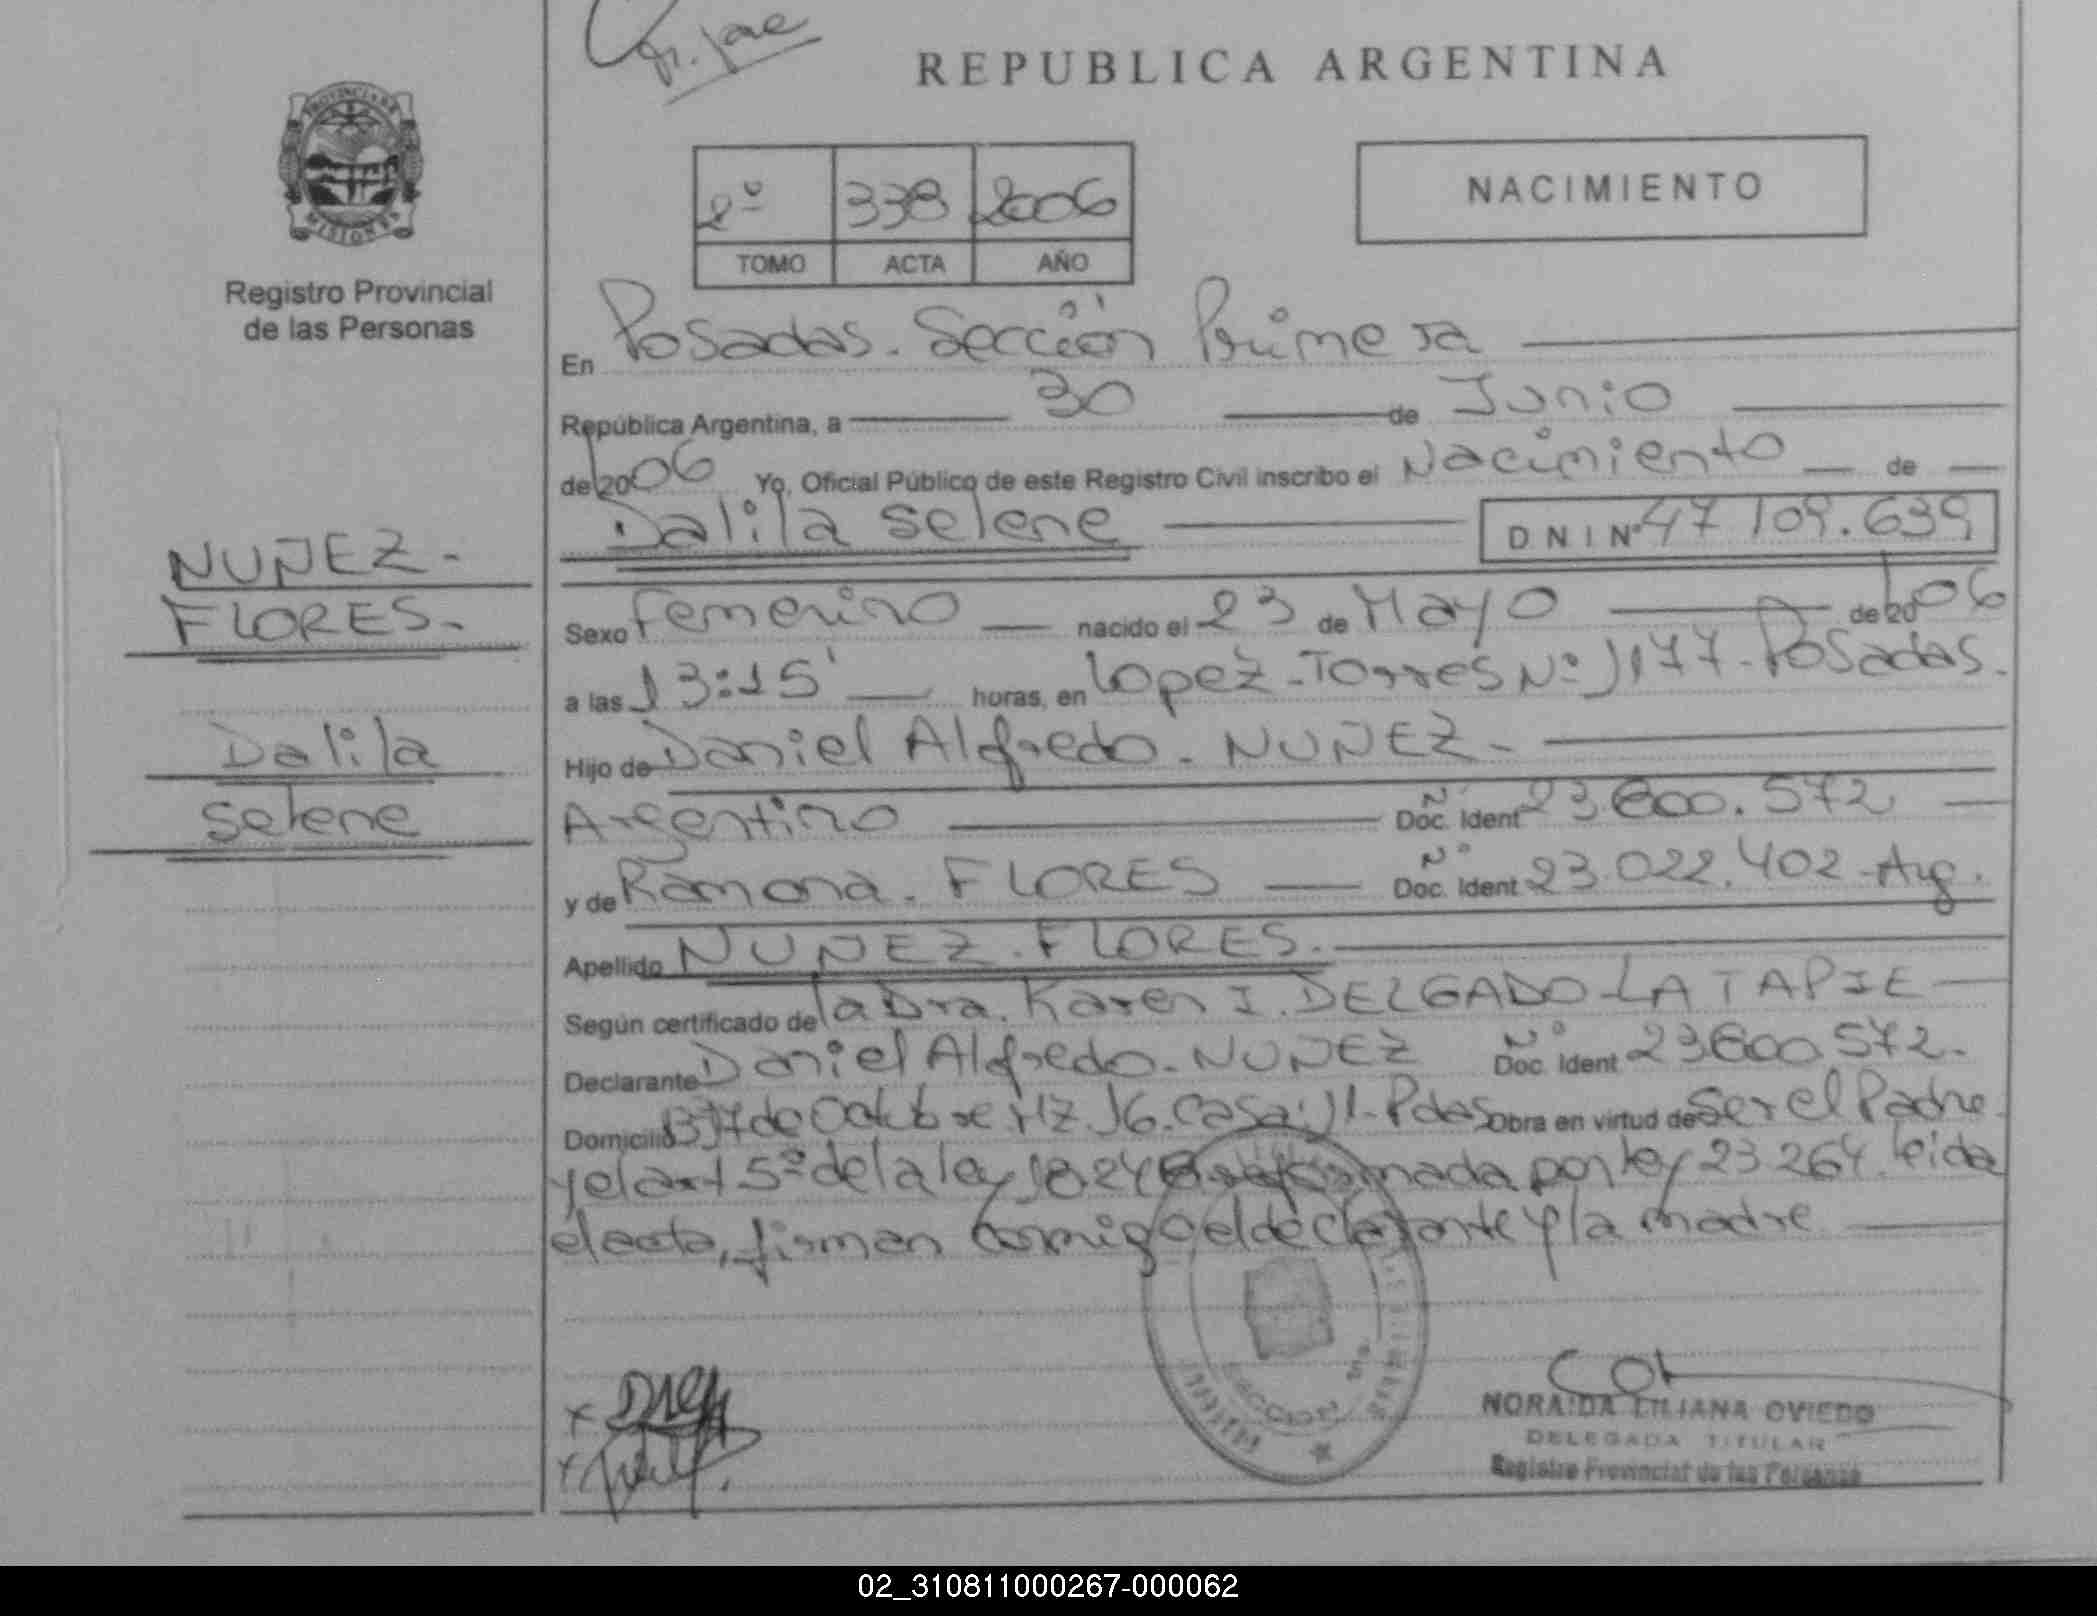 REPUBLICA ARGENTINA
PROVINCIA DE
MISIONES
Registro Provincial
de las Personas
2º 338 2006
TOMO ACTA AÑO
NACIMIENTO
En Posadas. Sección Primera
República Argentina, a 30 de Junio
de 2006 Yo, Oficial Público de este Registro Civil inscribo el Nacimiento de
Dalila Selene DNI Nº 47 109.639
NUÑEZ-
FLORES.
Dalila
Selene
Sexo femenino nacido el 23 de Mayo de 2006
a las 13:15' horas, en Lopez-Torres Nº 1177-Posadas.
Hijo de Daniel Alfredo. NUÑEZ
Argentino Nº Doc. Ident 23 600.572
y de Ramona. FLORES Nº Doc. Ident 23.022.402-Arg.
Apellido NUÑEZ. FLORES.
Según certificado de la Dra. Karen I. DELGADO LATAPIE
Declarante Daniel Alfredo. NUÑEZ Nº Doc. Ident 23600572.
Domicilio de Octubre MZ 16. Casa: 11-Pdas Obra en virtud de Ser el Padre
y el art 5º de la ley 18248 reformada por ley 23264. leida
el acta, firman conmigo el declarante y la madre
NORAIDA LILIANA OVIEDO
DELEGADA TITULAR
Registro Provincial de las Personas
02_310811000267-000062